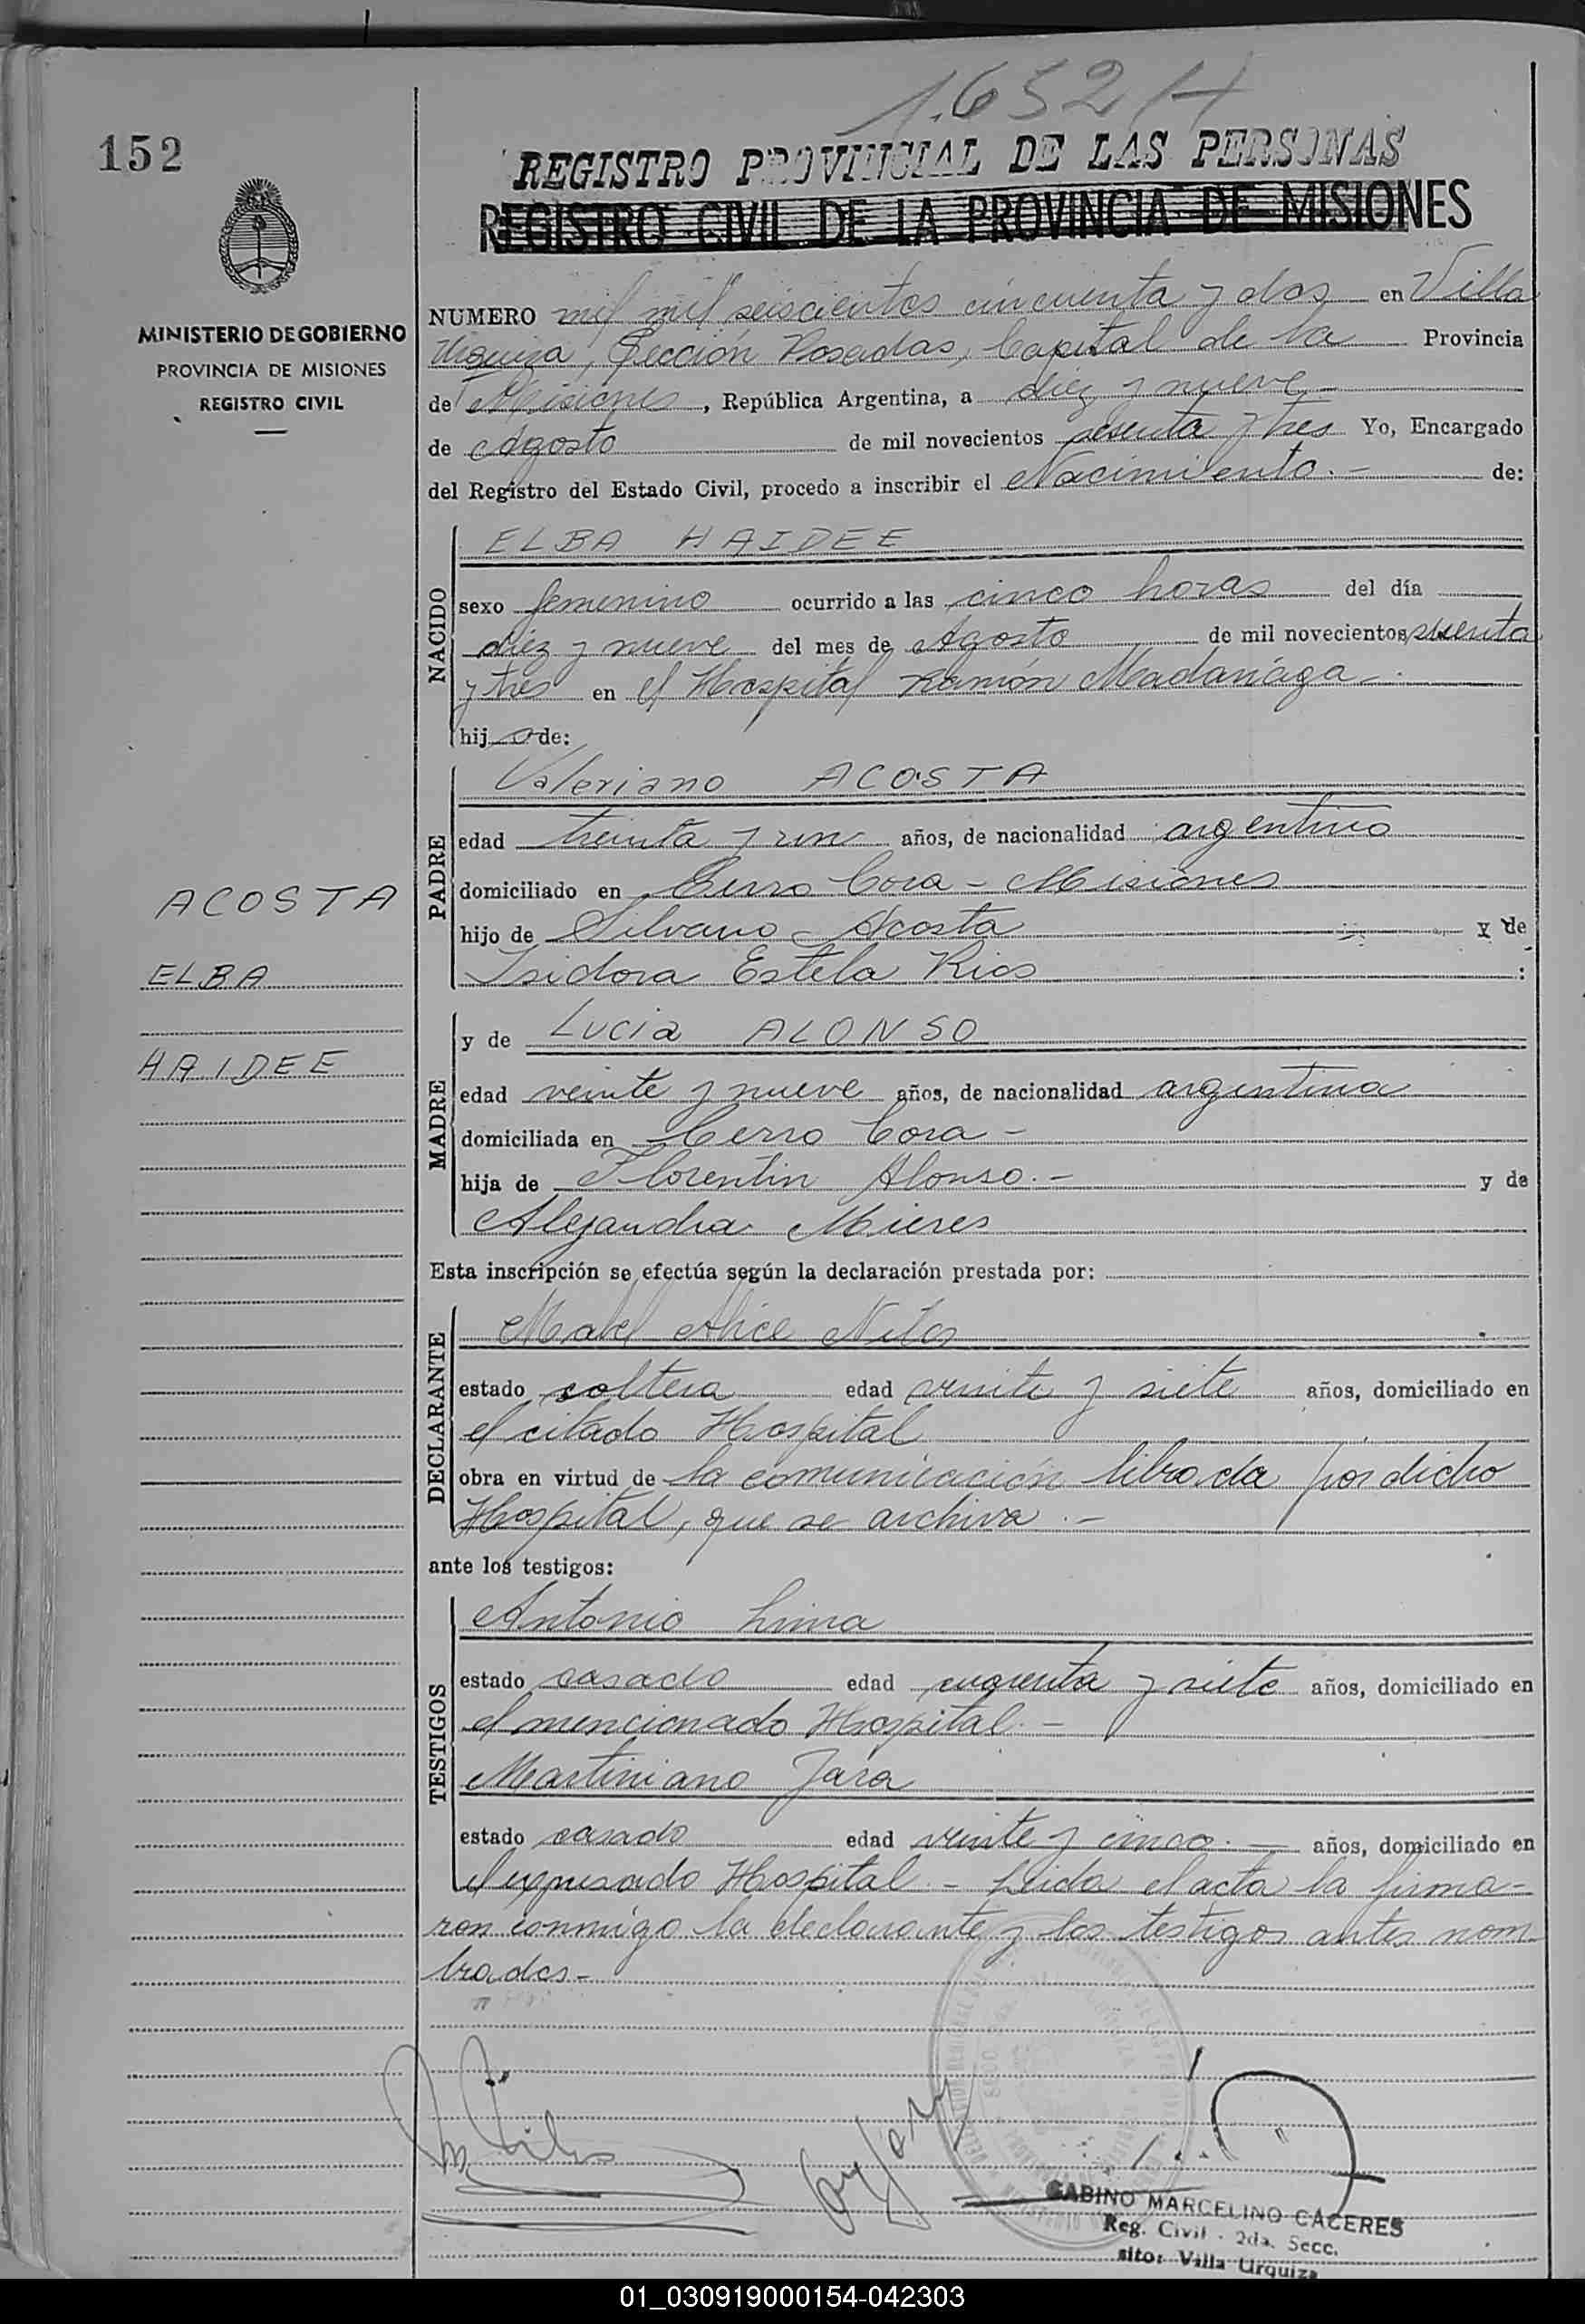 1.652/H
152
REGISTRO PROVINCIAL DE LAS PERSONAS
REGISTRO CIVIL DE LA PROVINCIA DE MISIONES
MINISTERIO DE GOBIERNO
PROVINCIA DE MISIONES
REGISTRO CIVIL
NUMERO mil mil seiscientos cincuenta y dos en Villa
Urquiza, Sección Posadas, Capital de la Provincia
de Misiones, República Argentina, a diez y nueve
de Agosto de mil novecientos sesenta y tres Yo, Encargado
del Registro del Estado Civil, procedo a inscribir el Nacimiento.- de:
NACIDO
ELBA HAIDEE
sexo femenino ocurrido a las cinco horas del día
diez y nueve del mes de Agosto de mil novecientos sesenta
y tres en el Hospital Ramón Madariaga.-
hija de:
PADRE
Valeriano ACOSTA
edad treinta y un años, de nacionalidad argentino
domiciliado en Cerro Cora - Misiones
hijo de Silvano Acosta y de
Isidora Estela Rios :
ACOSTA
ELBA
HAIDEE
MADRE
y de Lucia ALONSO
edad veinte y nueve años, de nacionalidad argentina
domiciliada en Cerro Cora -
hija de Florentin Alonso.- y de
Alejandra Mieres
Esta inscripción se efectúa según la declaración prestada por:
DECLARANTE
Mabel Alice
estado soltera edad veinte y siete años, domiciliado en
el citado Hospital
obra en virtud de la comunicación librada por dicho
Hospital, que se archiva.-
ante los testigos:
TESTIGOS
Antonio Lima
estado casado edad cuarenta y siete años, domiciliado en
el mencionado Hospital.-
Martiniano Jara
estado casado edad veinte y cinco.- años, domiciliado en
el expresado Hospital.- Leida el acta la firma-
ron conmigo la declarante y los testigos antes nom-
brados.-
GABINO MARCELINO CACERES
Reg. Civil - 2da. Secc.
sito: Villa Urquiza
01_030919000154-042303